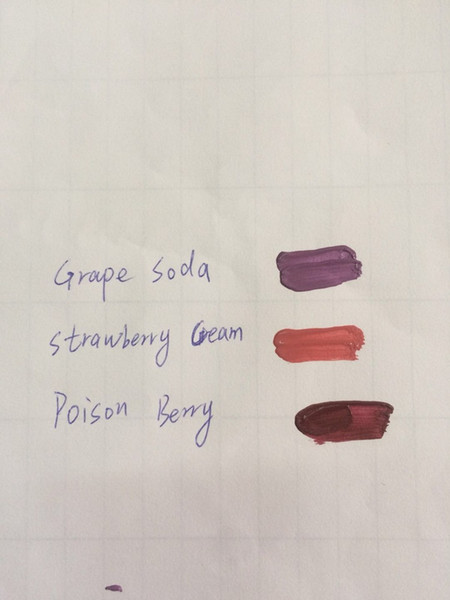 Grape Soda
Strawberry Cream
Poison Berry